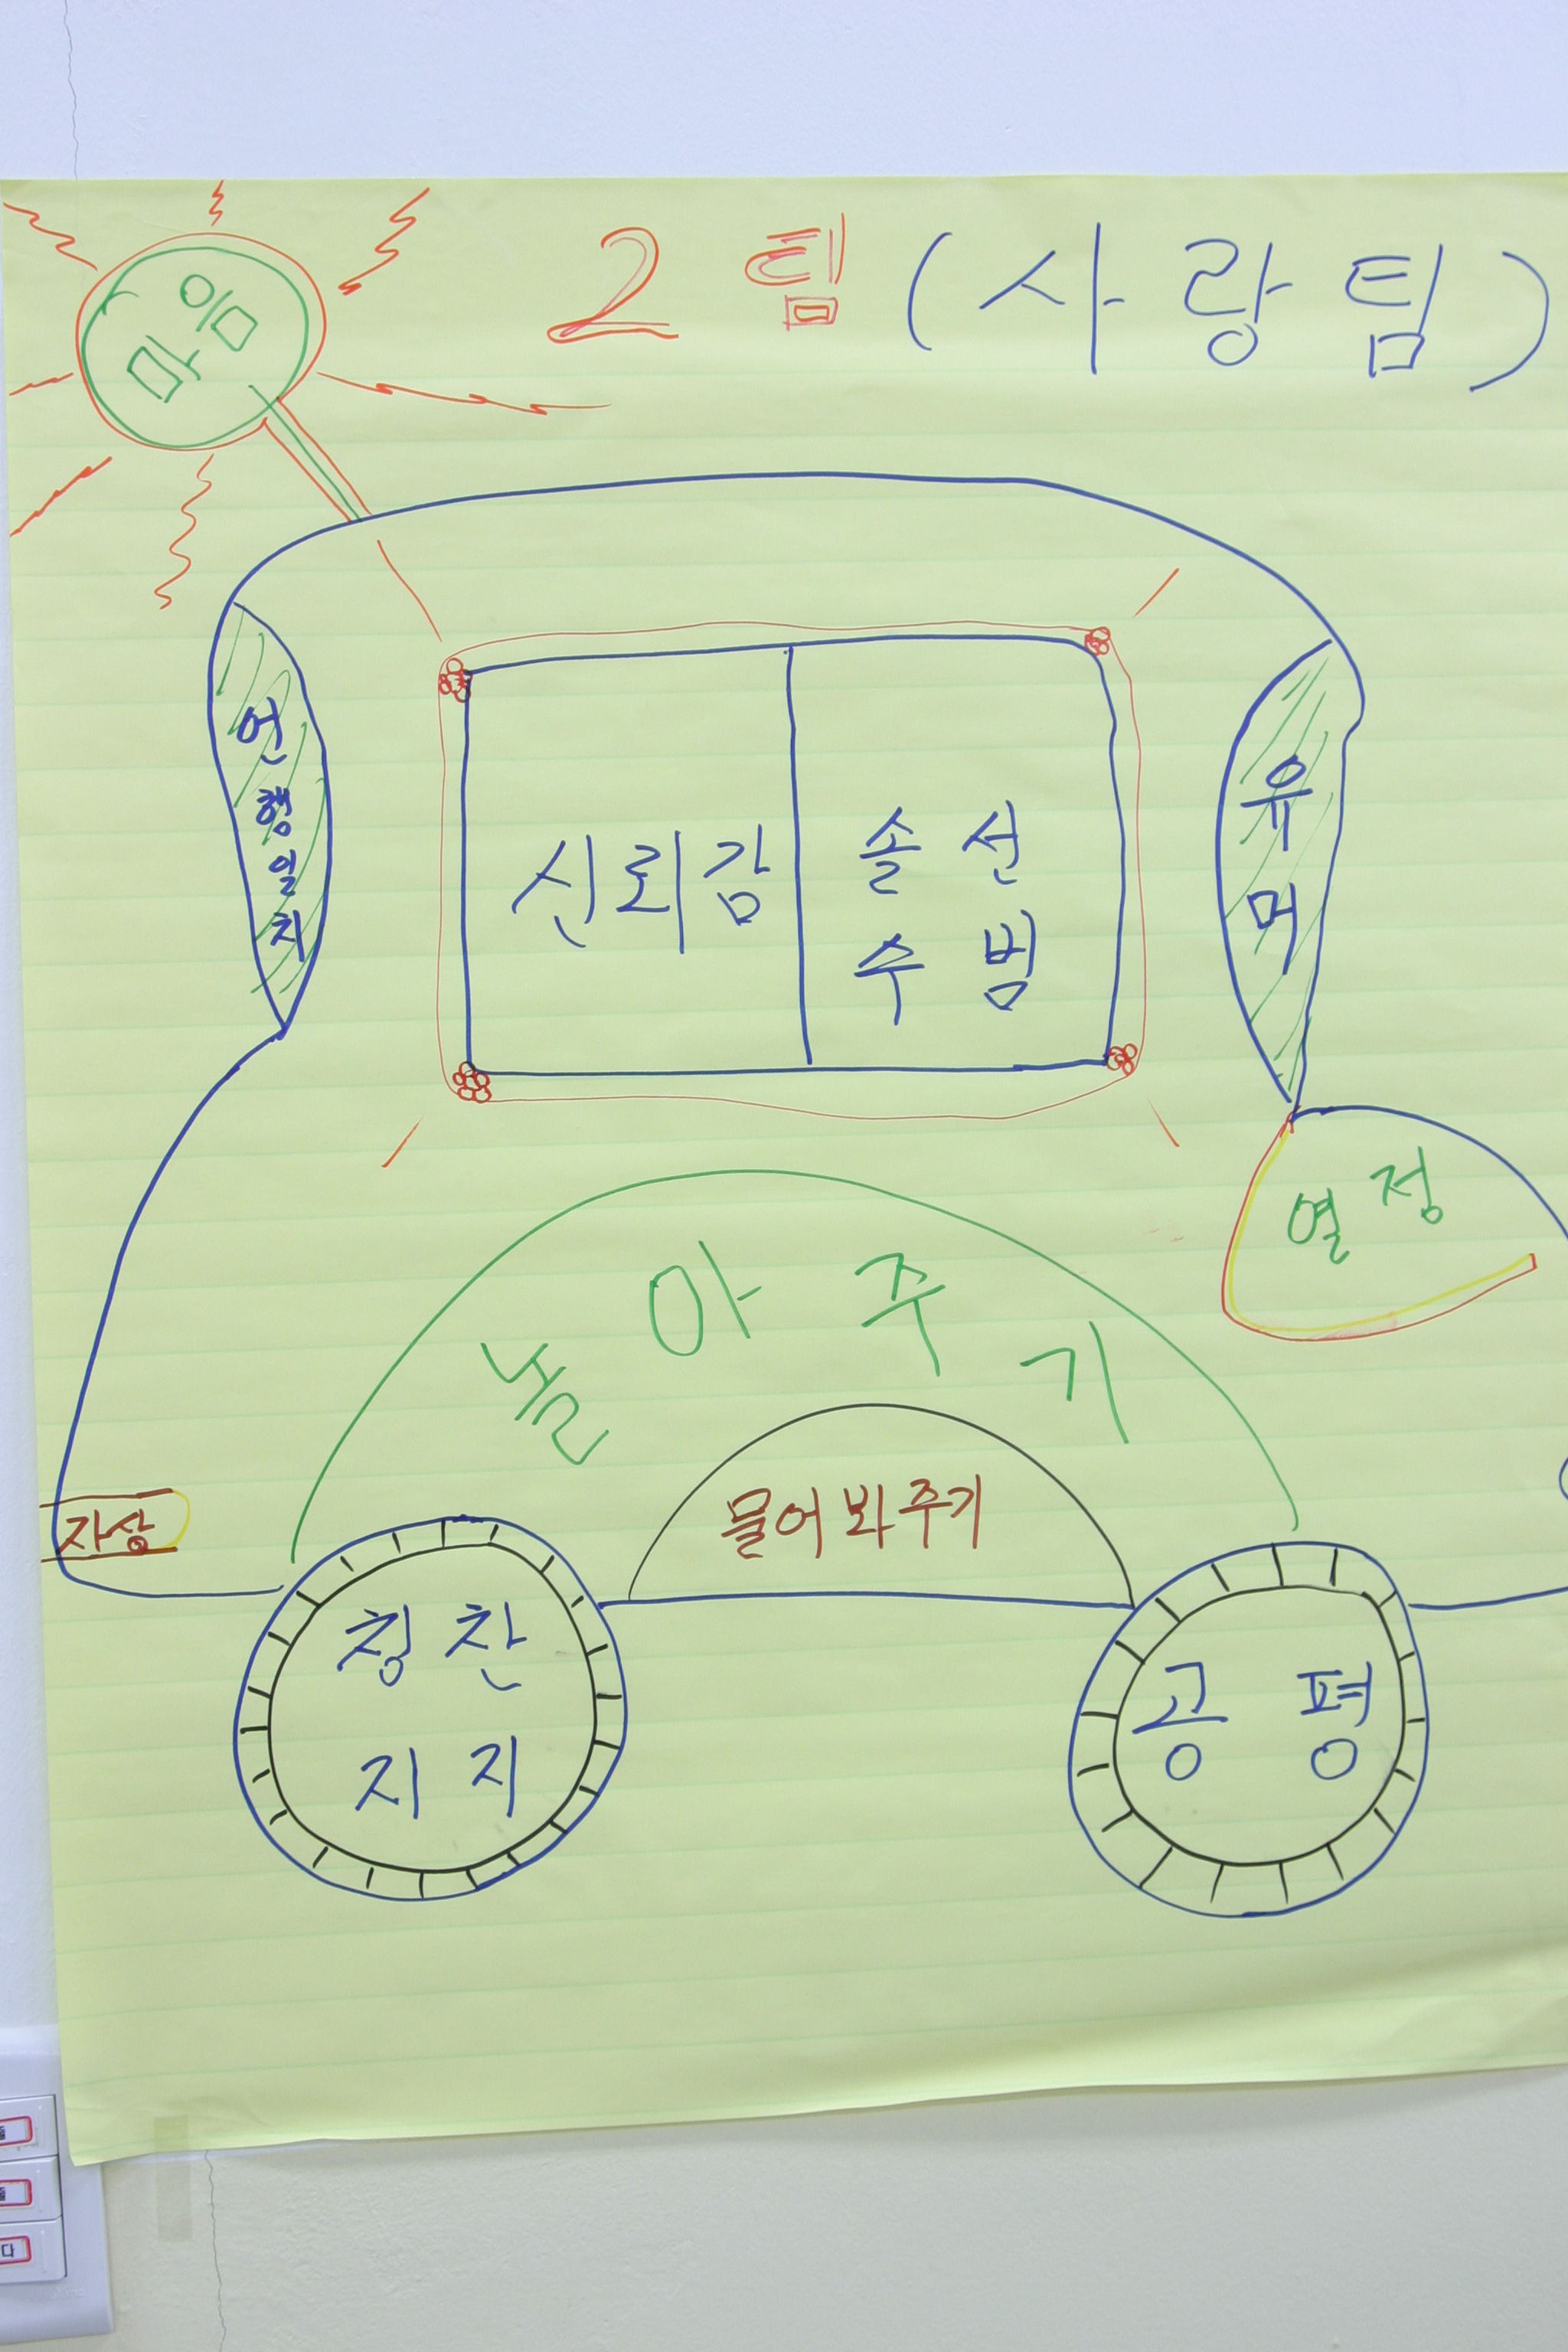 2팀 (사랑팀)
마음
언행일치
신뢰감
솔선
수범
유머
열정
놀아주기
물어봐주기
자상
칭찬
지지
공평